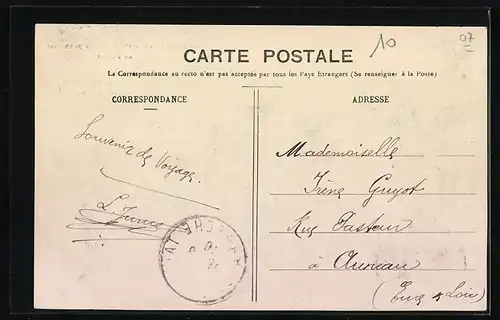 10
07
CARTE POSTALE
La Correspondance au recto n'est pas acceptée par tous les Pays Etrangers (Se renseigner à la Poste)
CORRESPONDANCE
ADRESSE
Souvenir de Voyage.
Mademoiselle
Irène Guyot
Rue Pasteur
à Auneau
(Eure & Loir)